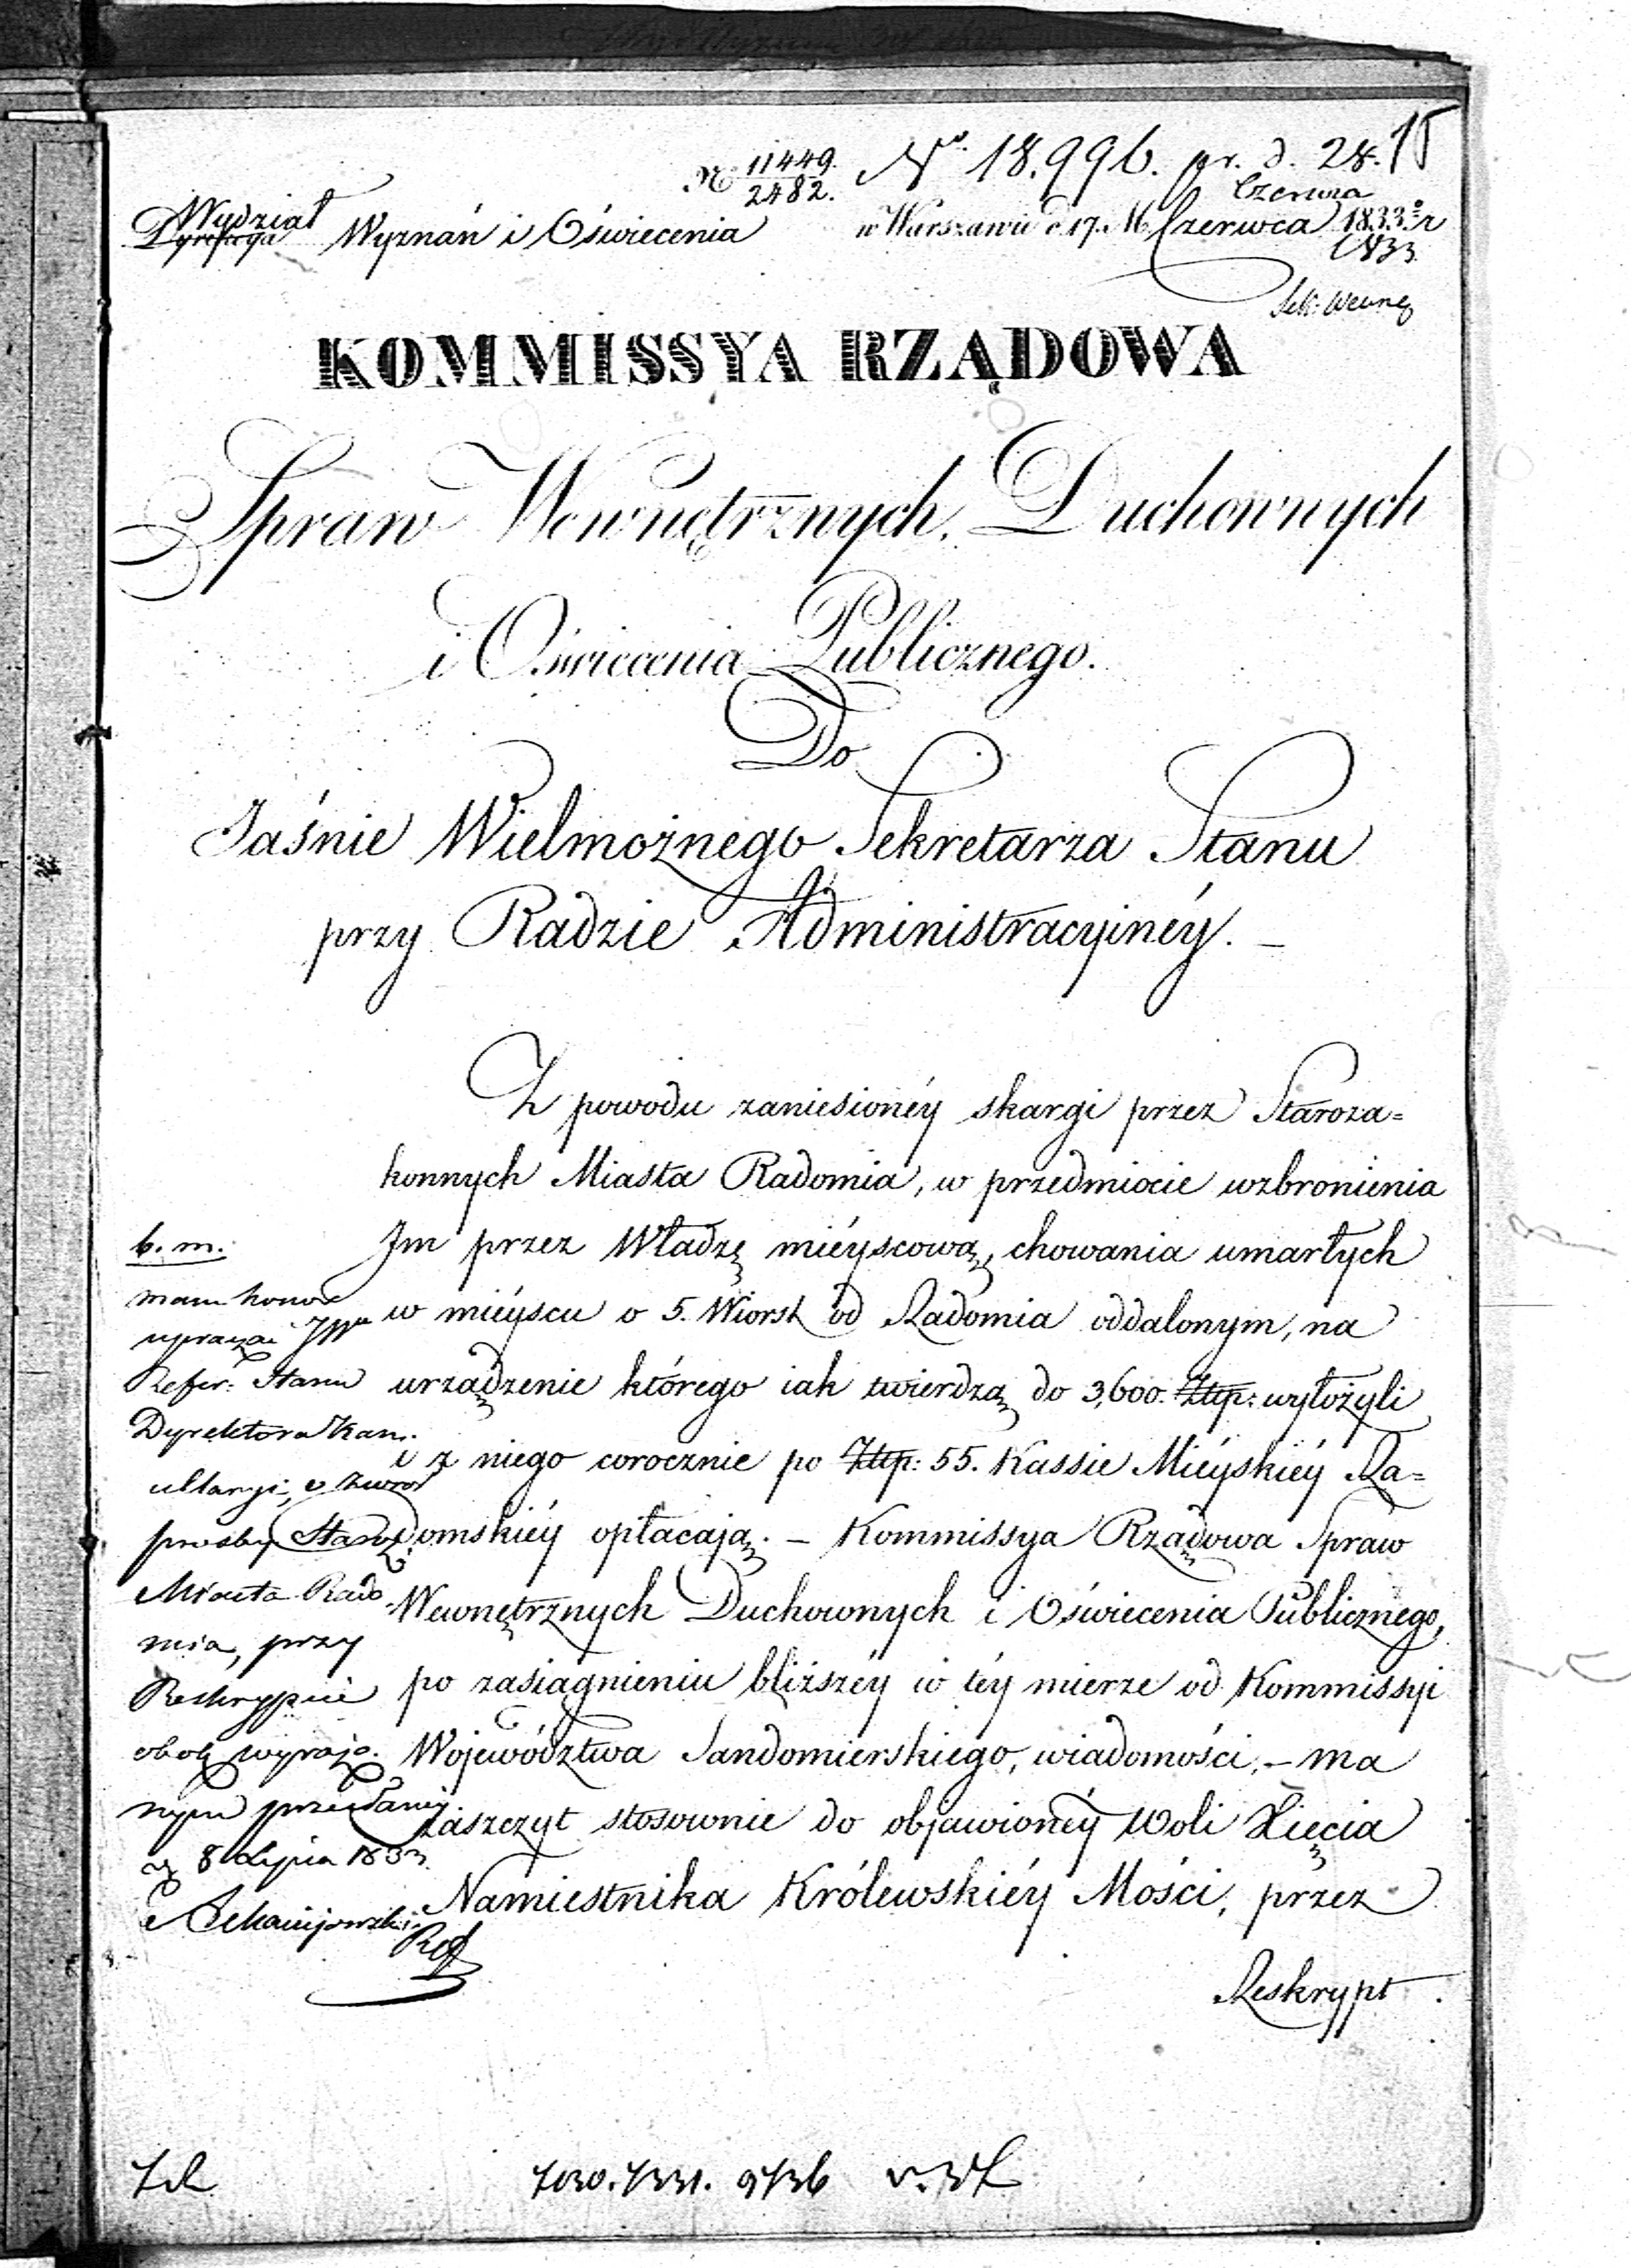 15
Nº 11449./2482. Nº 18.996. pr. d. 28.
Czerwca
1833
Wydział
Dyrekcya Wyznań i Oświecenia w Warszawie d 17. M. Czerwca 1833º r
KOMMISSYA RZĄDOWA
Spraw Wewnętrznych, Duchownych
i Oświecenia Publicznego.
Do
Jaśnie Wielmożnego Sekretarza Stanu
przy Radzie Administracyinéy. –
Z powodu zaniesionéy skargi przez Staroza=
konnych Miasta Radomia, w przedmiocie wzbronienia
Jm przez Władzę miéyscową, chowania umarłych
w miéyscu o 5. Wiorst od Radomia oddalonym, na
urządzenie którego iak twierdzą do 3,600. Złtp: wyłożyli
i z niego corocznie po Złtp: 55. Kassie Miéyskiéy Ra=
domskiéy opłacają. – Kommissya Rządowa Spraw
Wewnętrznych Duchownych i Oświecenia Publicznego,
po zasiągnieniu bliższéy w téy mierze od Kommissyi
Województwa Sandomierskiego, wiadomości, – ma
zaszczyt stosownie do objawionéy Woli Xięcia
Namiestnika Królewskiéy Mości, przez
Reskrypt
b. m.
mam honor
upraszać JWu
Refer: Stanu
Dyrektora Kan.
o zwrot
prosby Staroz.
Miasta Rado
mia, przy
Reskrypcie
obok wyrażo.
nym
8 Lipca 1833.
Ref